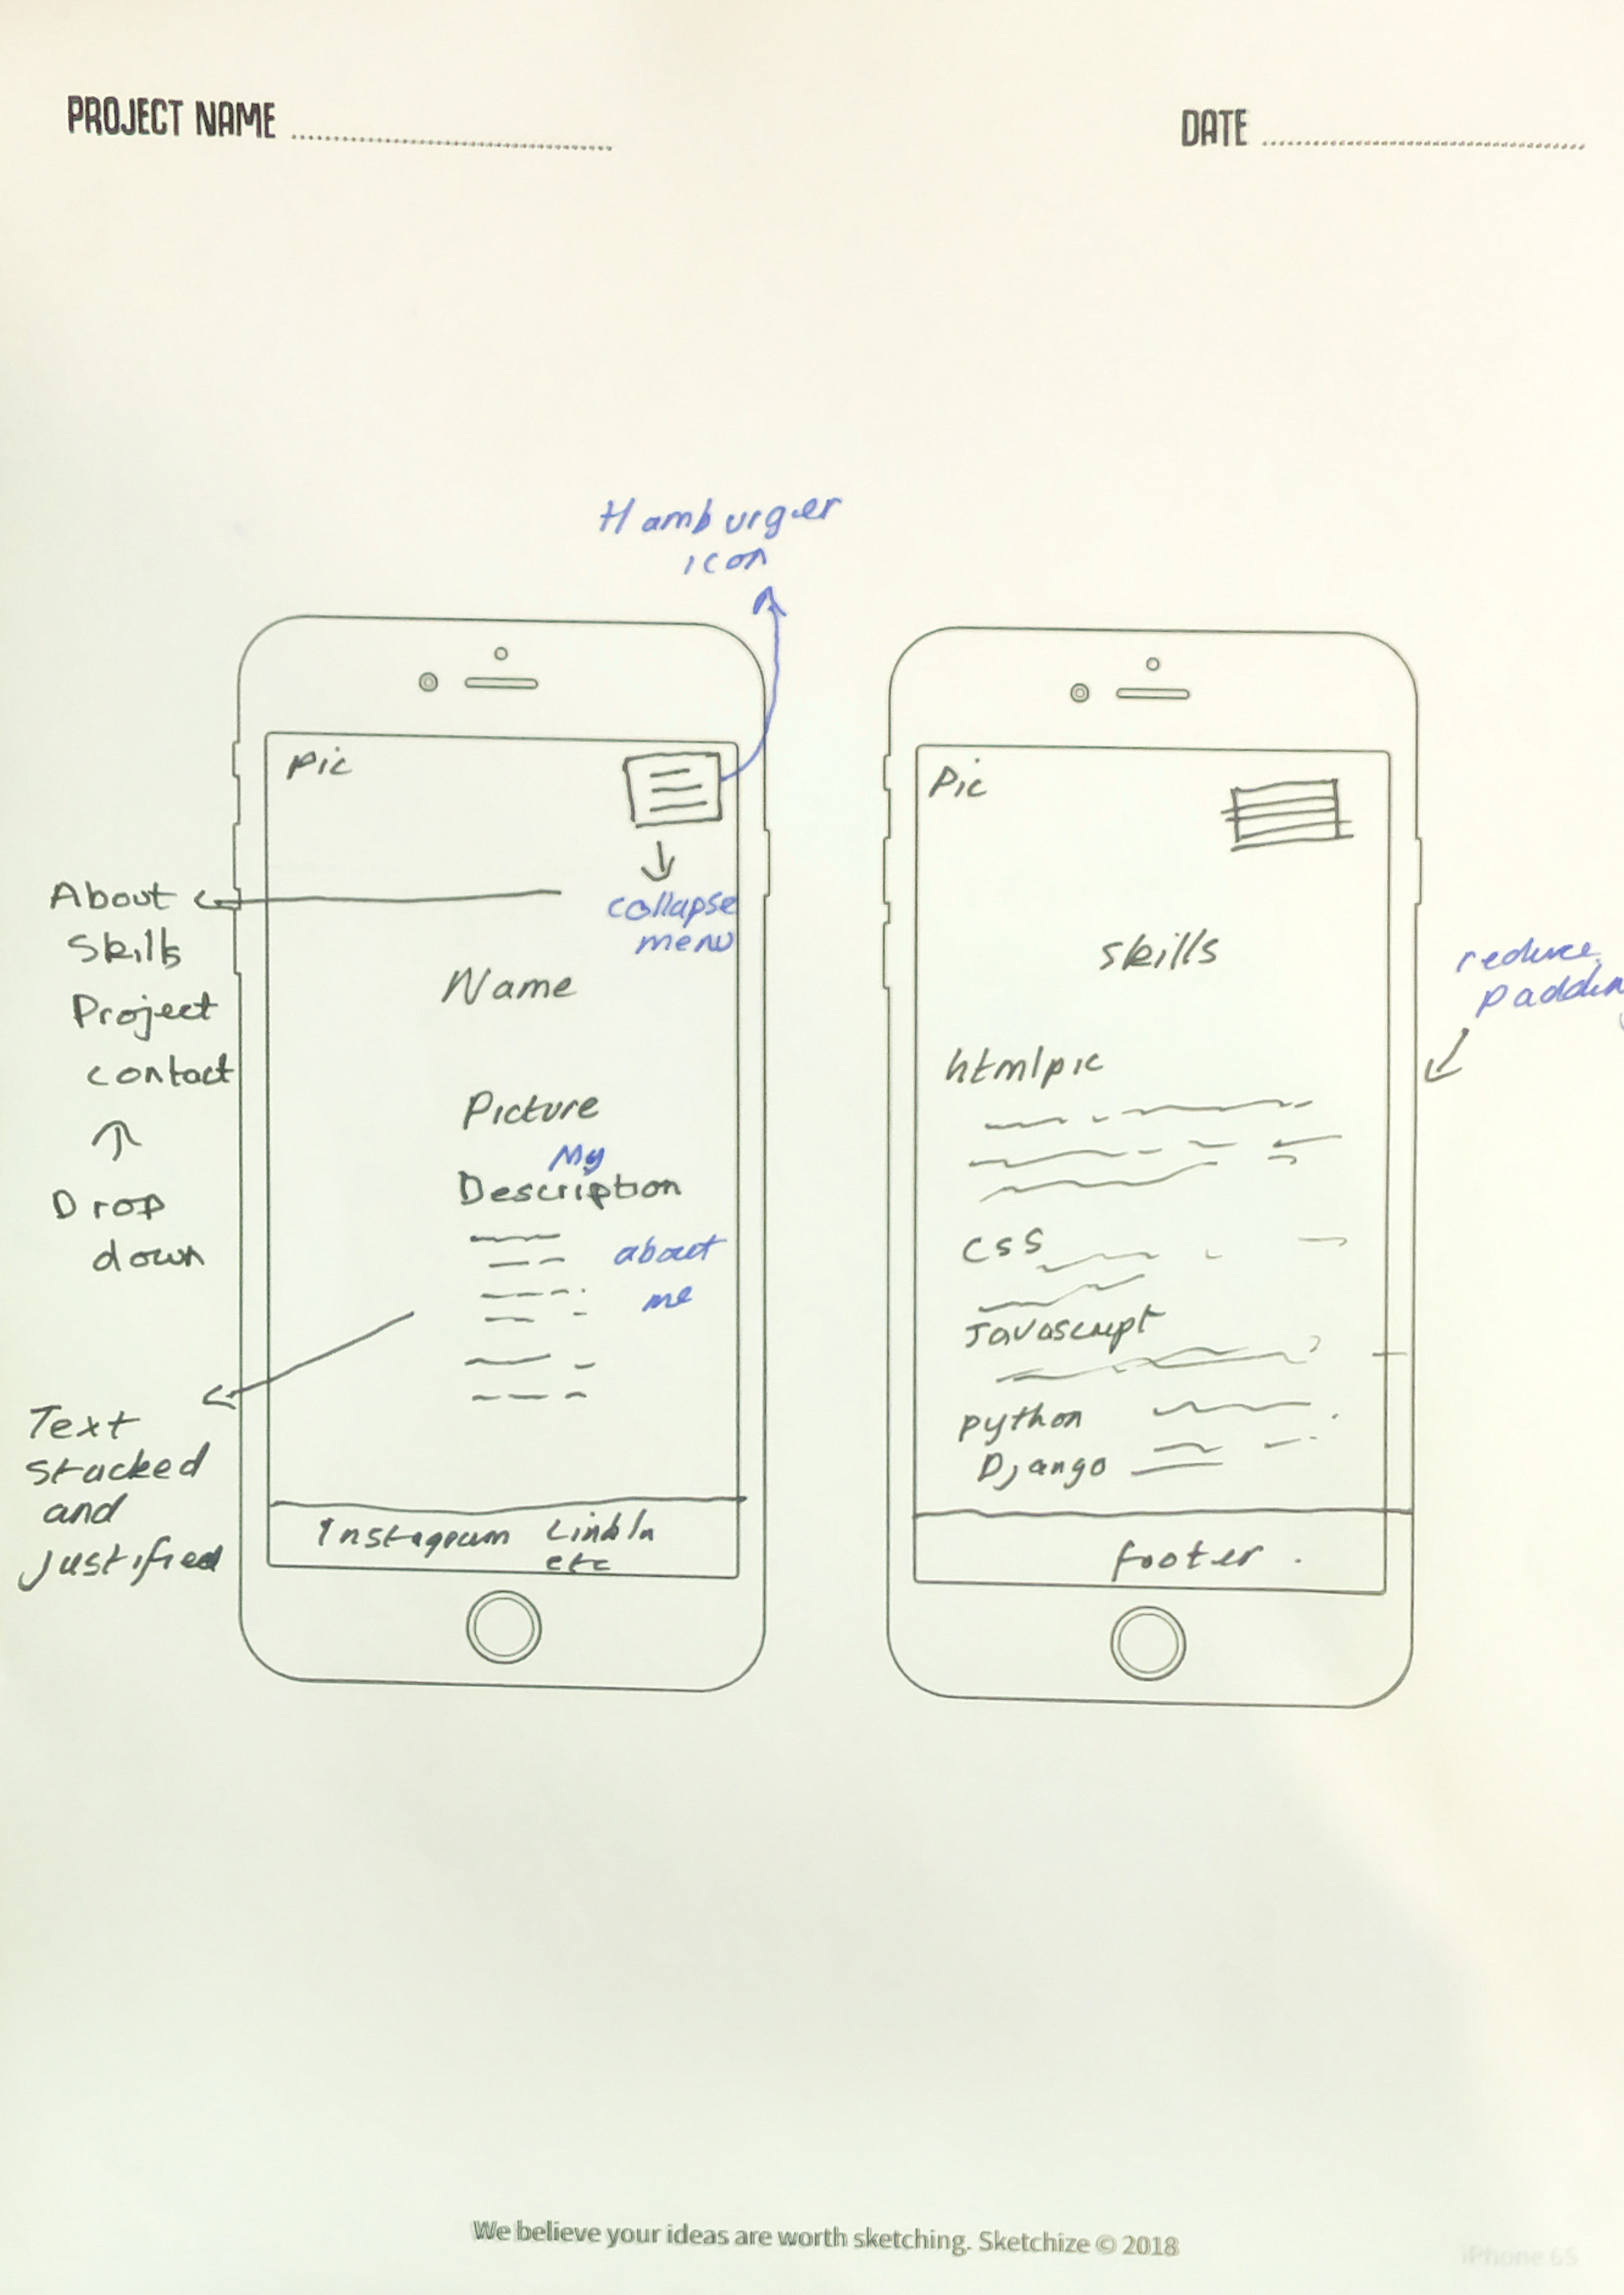 PROJECT NAME
DATE
Hamburger
icon
Pic
collapse
menu
About
Skills
Project
contact
Drop
down
Name
Picture
My
Description
about
me
Text
stacked
and
justified
Instagram LinkIn
etc
Pic
skills
reduce
html pic
css
Javascript
python
Django
footer .
We believe your ideas are worth sketching. Sketchize © 2018
iPhone 6S